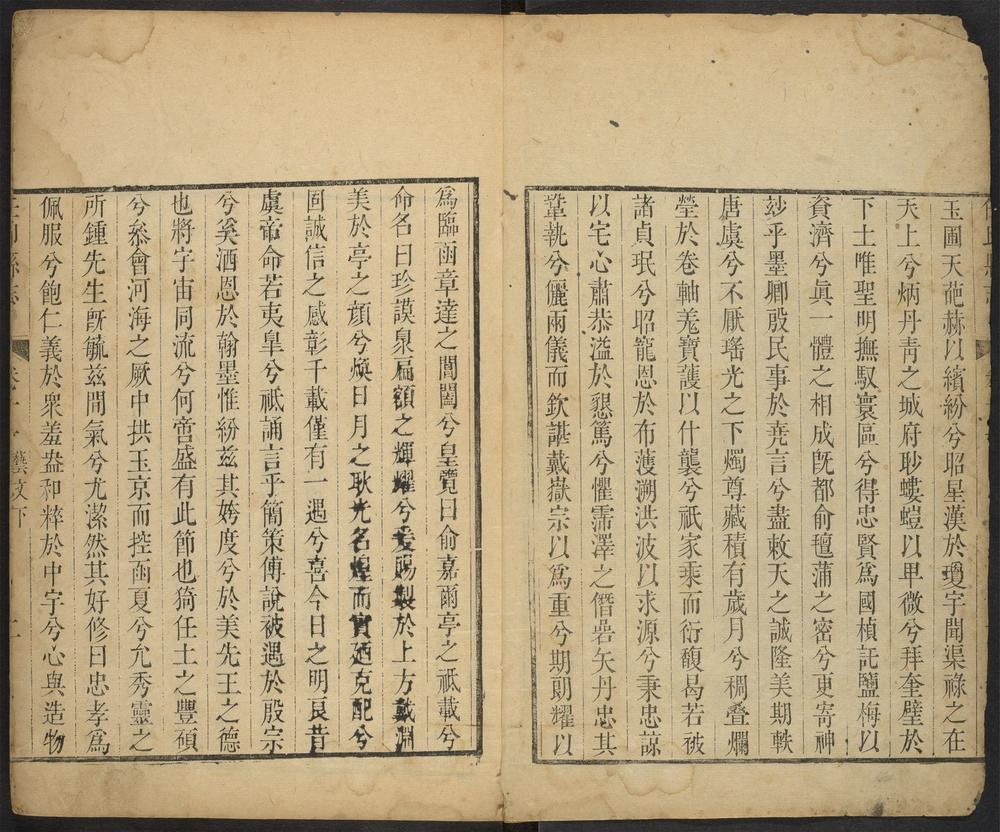 玉圃天葩赫以繽紛兮昭星漢於瓊宇聞渠祿之在
天上兮炳丹青之城府眇螻螘以卑微兮拜奎璧於
下土唯聖明撫馭寰區兮得忠賢爲國楨託鹽梅以
資濟兮眞一體之相成旣都俞氊蒲之密兮更寄神
玅乎墨卿殷民事於堯言兮盡敕天之誠隆美期軼
唐虞兮不厭瑤光之下燭尊藏積有歲月兮稠疊爛
瑩於卷軸羗寶蒦以什襲兮祇家乘而衍馥曷若被
諸貞珉兮昭寵恩於布濩溯洪波以求源兮秉忠諒
以宅心肅恭溢於懇篤兮懼霈澤之僭喦矢丹忠其
鞏執兮儷兩儀而欽諶戴嶽宗以爲重兮期朗耀以
爲臨雨章達之閶闔兮皇覽曰俞嘉爾亭之祗載兮
命名曰珍謨臮扁額之輝燿兮爰賜製於上方戴淵
美於亭之顔兮煥日月之耿光名煌而實廼克配兮
固誠信之感彰千載僅有一遇兮喜今日之明良昔
虞帝命若夷臯兮祗誦言乎簡策傅說被遇於殷宗
兮奚洒恩於翰墨惟紛兹其姱度兮於美先王之德
也將宇宙同流兮何啻盛有此節也猗任土之豐碩
兮叅會河海之厥中拱玉京而控函夏兮允秀靈之
所鍾先生旣毓兹間氣兮尤潔然其好修曰忠孝爲
佩服兮飽仁義於衆羞盎和粹於中字兮心與造物
藝文下